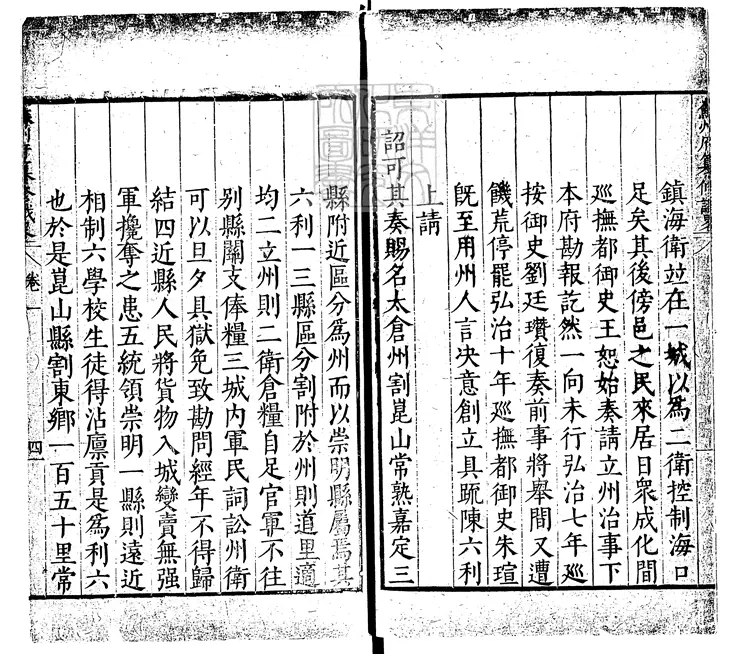 鎮海衛竝在一城以爲二衛控制海口
足矣其後傍邑之民來居日衆成化間
廵撫都御史王恕始奏請立州治事下
本府勘報訖然一向未行弘治七年廵
按御史劉廷瓚復奏前事將舉間又遭
饑荒停罷弘治十年廵撫都御史朱瑄
旣至用州人言决意創立具疏陳六利
上請
詔可其奏賜名太倉州割崑山常熟嘉定三
縣附近區分爲州而以崇明縣屬焉其
六利一三縣區分割附於州則道里適
均二立州則二衛倉糧自足官軍不往
别縣關支俸糧三城内軍民詞訟州衛
可以旦夕具獄免致勘問經年不得歸
結四近縣人民將貨物入城變賣無强
軍攙奪之患五統領崇明一縣則遠近
相制六學校生徒得沾廪貢是爲利六
也於是崑山縣割東鄉一百五十里常
卷一
四